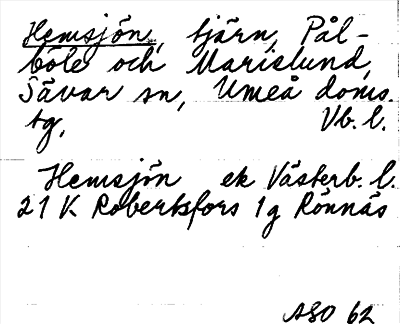 Hemsjön, tjärn, Pål-
böle och Marislund,
Sävar sn, Umeå doms.
tg, Vb. l.
Hemsjön ek Västerb. l.
21 K Robertsfors 1g Rönnäs
ASO 62